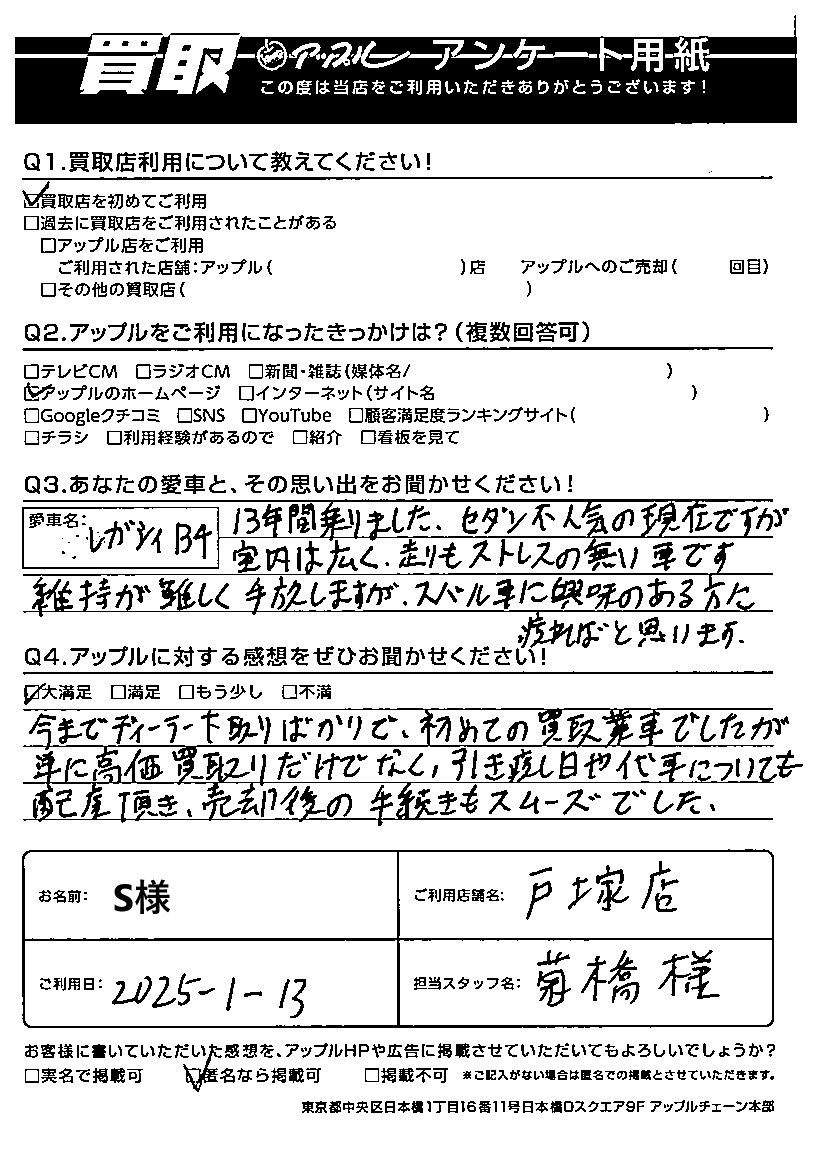 買取 アップル アンケート用紙
この度は当店をご利用いただきありがとうございます!
Q1.買取店利用について教えてください!
☑買取店を初めてご利用
□過去に買取店をご利用されたことがある
□アップル店をご利用
ご利用された店舗:アップル( )店 アップルへのご売却( 回目)
□その他の買取店( )
Q2.アップルをご利用になったきっかけは?(複数回答可)
□テレビCM □ラジオCM □新聞・雑誌(媒体名/ )
☑アップルのホームページ □インターネット(サイト名 )
□Googleクチコミ □SNS □YouTube □顧客満足度ランキングサイト( )
□チラシ □利用経験があるので □紹介 □看板を見て
Q3.あなたの愛車と、その思い出をお聞かせください!
愛車名: レガシィB4 13年間乗りました、セダン不人気の現在ですが
室内は広く、走りもストレスの無い車です
維持が難しく手放しますが、スバル車に興味のある方に
渡ればと思います.
Q4.アップルに対する感想をぜひお聞かせください!
☑大満足 □満足 □もう少し □不満
今までディーラー下取りばかりで、初めての買取業車でしたが
単に高価買取りだけでなく、引き渡し日や代車についても
配慮頂き、売却後の手続きもスムーズでした、
お名前: S様 ご利用店舗名: 戸塚店
ご利用日: 2025-1-13 担当スタッフ名: 菊橋様
お客様に書いていただいた感想を、アップルHPや広告に掲載させていただいてもよろしいでしょうか?
□実名で掲載可 ☑匿名なら掲載可 □掲載不可 ※ご記入がない場合は匿名での掲載とさせていただきます。
東京都中央区日本橋1丁目16番11号日本橋Dスクエア9F アップルチェーン本部